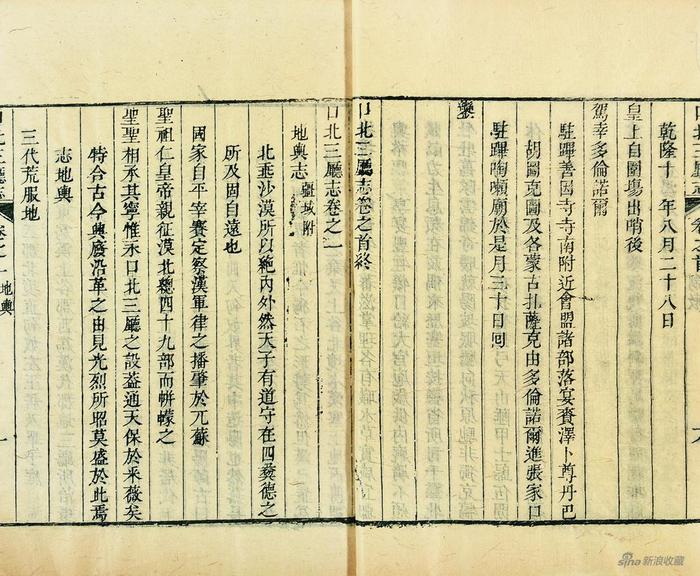 乾隆十 年八月二十八日
皇上自圍場出哨後
駕幸多倫諾爾
駐蹕善因寺寺南附近會盟諸部落宴賚澤卜尊丹巴
胡圖克圖及各蒙古扎薩克由多倫諾爾進張家口
駐蹕啕廟於是月三十日囘
鑾
口北三廳志卷之首終
口北三廳志卷之一
地輿志 疆域附
北垂沙漠所以絶内外然天子有道守在四彝德之
所及固自遠也
國家自平宰賽定察漢軍律之播肇於兀蘇
聖祖仁皇帝親征漠北總四十九部而帲幪之
聖聖相承其寧惟永口北三廳之設葢通天保於釆薇矣
特合古今興廢沿革之由見光烈所昭莫盛於此焉
志地輿
三代荒服地
口北三廳志 卷之一 地輿 一
sina新浪收藏